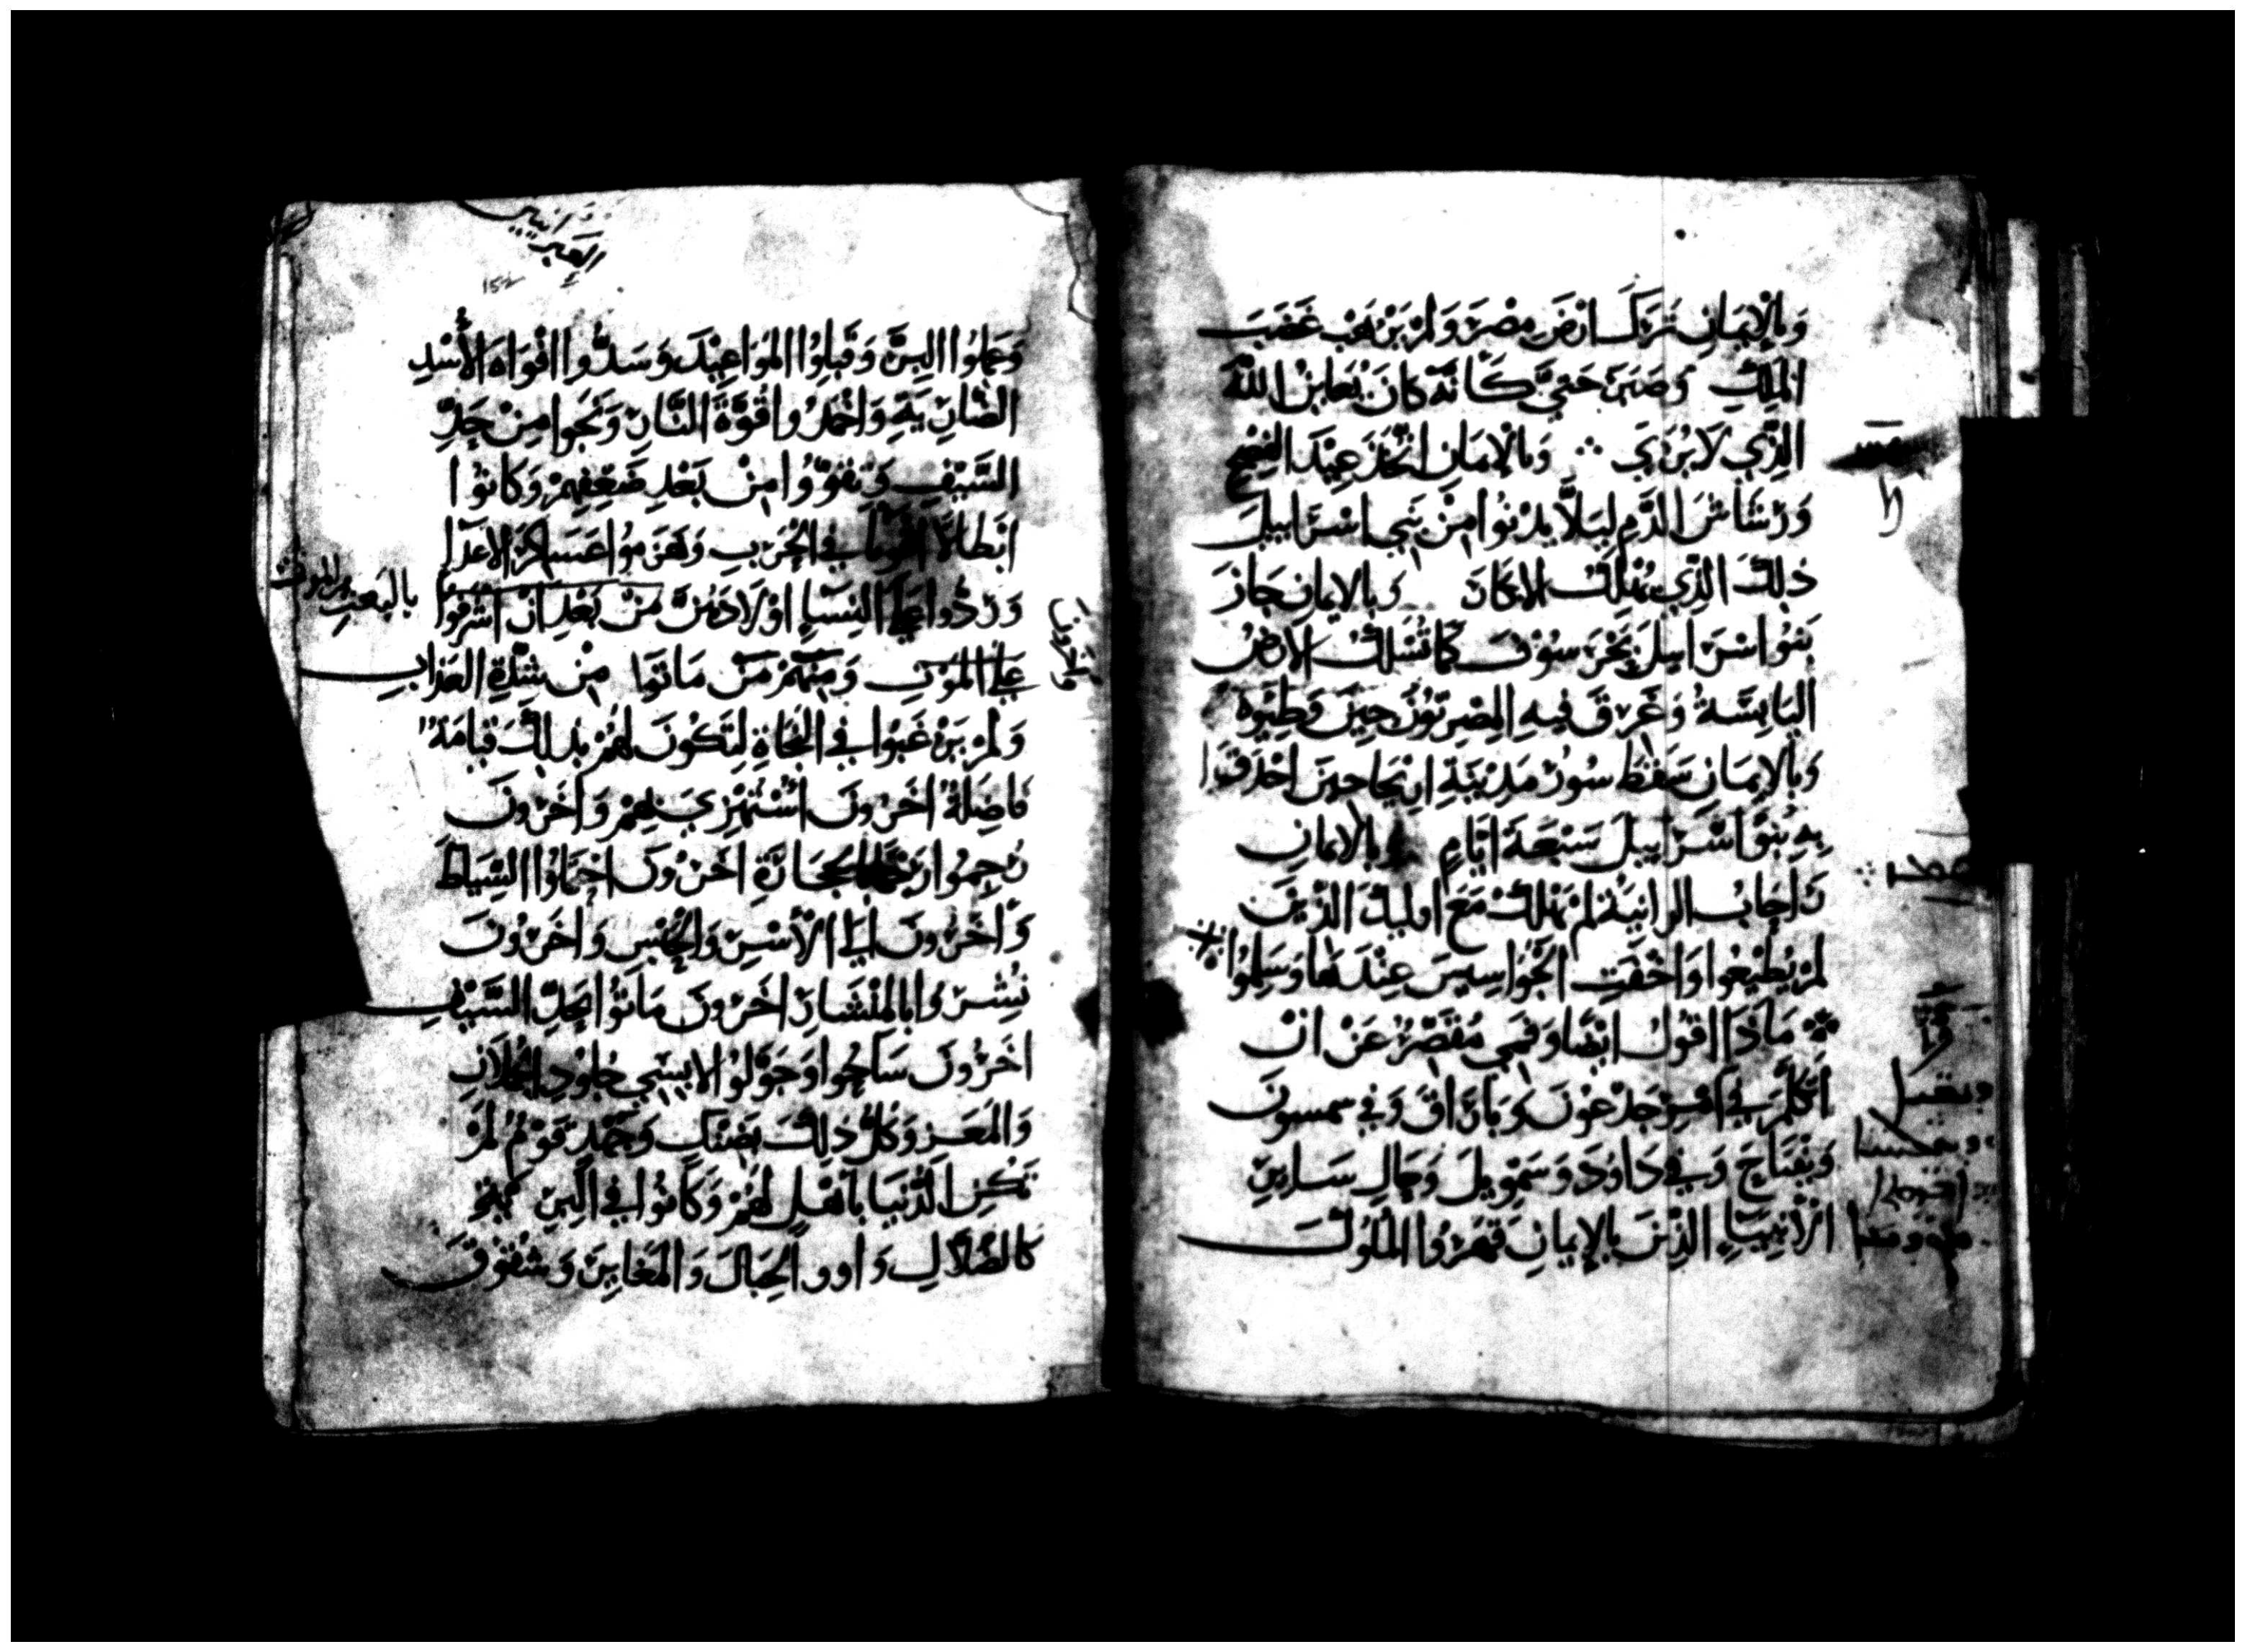 وَبِالْاِيمَانِ تَرَكَ ارْضَ مِصْرَ وَلَمْ يَرْهَب غَضَبَ
الْمَلِكِ وَصَبَرَ حَتَّي كَاَنَّهُ كَانَ يُعَايِنُ اللَّهَ
الَّذِي لَا يُرَي ∴ وَبِالْاِيمَانِ اتَّخَذَ عِيْدَ الْفِصْحِ
وَرْشَاشَ الدَّمِ لِيَلَّا يَدْنُوا مِنْ بَنِي اسْرَاييلَ
ذلِكَ الَّذِي يُهْلِكُ الابكَارَ وَبِالايمانِ جَازَ
بَنُوا اسْرَاييلَ بَحْرَ سُوْفَ كَمَا تُسْلَكُ الارْضُ
الْيَابِسَةُ وَغَرِقَ فِيهِ الْمِصْرِيُّونَ حِينَ
وَبِالايمَانِ سَقَطَ سُورُ مَدِيْنَةِ ارِيْحَا حِينَ احْدَقُوا
بِهِ بَنُوا اسْرَاييلَ سَبْعَةَ ايَّامٍ وَبِالايمانِ
رَاحَابُ الزانِيَةُ لَمْ تَهْلِكْ مَعَ اوليكَ الَّذِينَ
لَمْ يُطِيْعُوا وَاخْفَتِ الْجَوَاسِيسَ عِنْدَهَا وَسَلِمُوا
مَاذَا اقُولُ ايْضًا وَفَمِي مُقَصِّرٌ عَنْ انْ
اتكَلَّمَ فِي امْرِ جِدْعُونَ وَبَارَاقَ وَفِي سمسونَ
وَيَفْتَاحَ وَفِي دَاوُدَ وَسَمْوِييلَ وَحَالِ سَايِرِ
الْاَنْبِيَاءِ الَّذِينَ بِالْاِيمَانِ قَهَرُوا الْمُلُوكَ
العبرانيين
وَعَمِلُوا البِرَّ وَقَبِلُوا الْمَوَاعِيْدَ وَسَدُّوا افْوَاهَ الْاُسْدِ
الضَّارِيَةِ وَاخْمَدُوا قُوَّةَ النَّارِ وَنَجَوا مِنْ حَدِّ
السَّيْفِ وَتَقَوَّوُا مِنْ بَعْدِ ضَعْفِهِمْ وَكَانُوا
ابْطَالًا اقْوِيَا فِي الْحَرْبِ وَهَزَمُوا عَسَاكِرَ الاعْدَا
وَرَدُّوا عَلَي النِسَاءِ اوْلَادَهُنَّ مِنْ بَعْدِ انْ اشْرَفُوا
عَلَي الْمَوْتِ وَمِنْهُمْ مَنْ مَاتُوا مِنْ شِدَّةِ الْعَذَابِ
وَلَمْ يَرْغَبُوا فِي النَّجَاةِ لِتَكُونَ لَهُمْ بِذلِكَ قِيَامَةٌ
فَاضِلَةٌ اخَرُونَ اسْتُهْزِيَ بِهِمْ وَاخَرُونَ
رُجِمُوا بِالحِجَارَةِ اخَرُونَ احْتَمَلُوا السِّيَاطَ
وَاخَرُونَ الَي الْاَسْرِ وَالْحَبْسِ وَاخَرُونَ
نُشِرُوا بِالْمِنْشَارِ اخَرُونَ مَاتُوا بِحَدِّ السَّيْفِ
اخَرُونَ سَاحُوا وَجَوَّلُوا لابِسِي جُلُودِ الْحُمْلَانِ
وَالْمَعَزِ وَكُلُّ ذلِكَ بِضَنْكٍ وَجَهْدٍ قَوْمٌ لَمْ
تَكُنِ الدُّنْيَا باهْلٍ لَهُمْ وَكَانُوا فِي الْبَرِّ
كَالضُّلَّالِ وَاوو الْجِبَالَ وَالْمَغَايِرَ وَشُقُوقَ